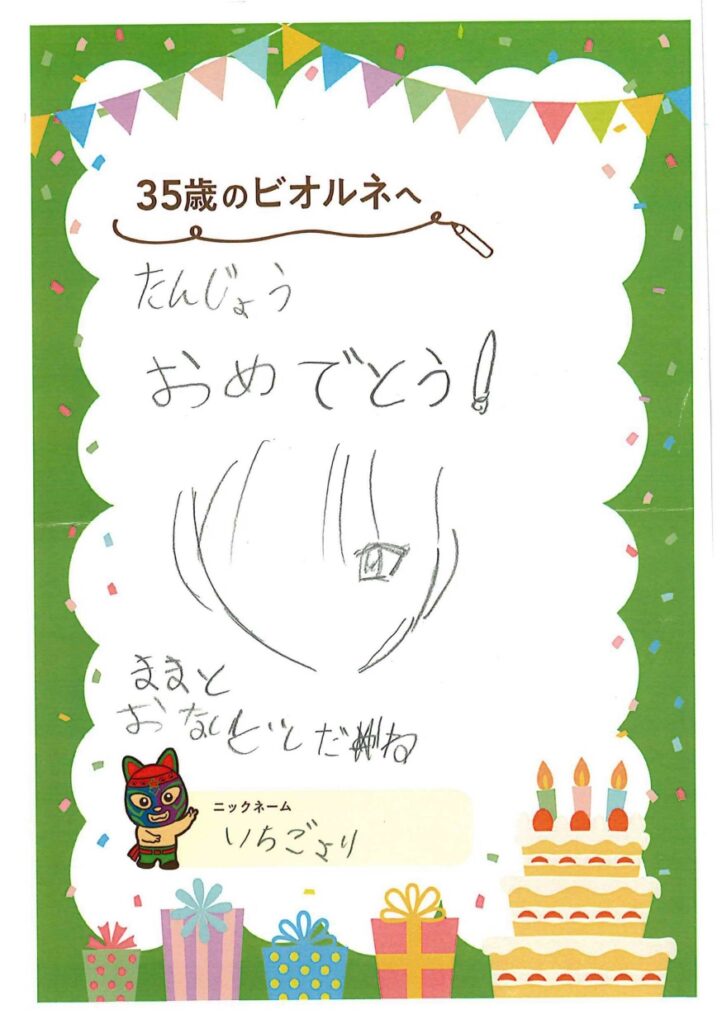 35歳のビオルネへ
たんじょう
おめでとう!
ままと
おなじどしだね
ニックネーム
いちごより